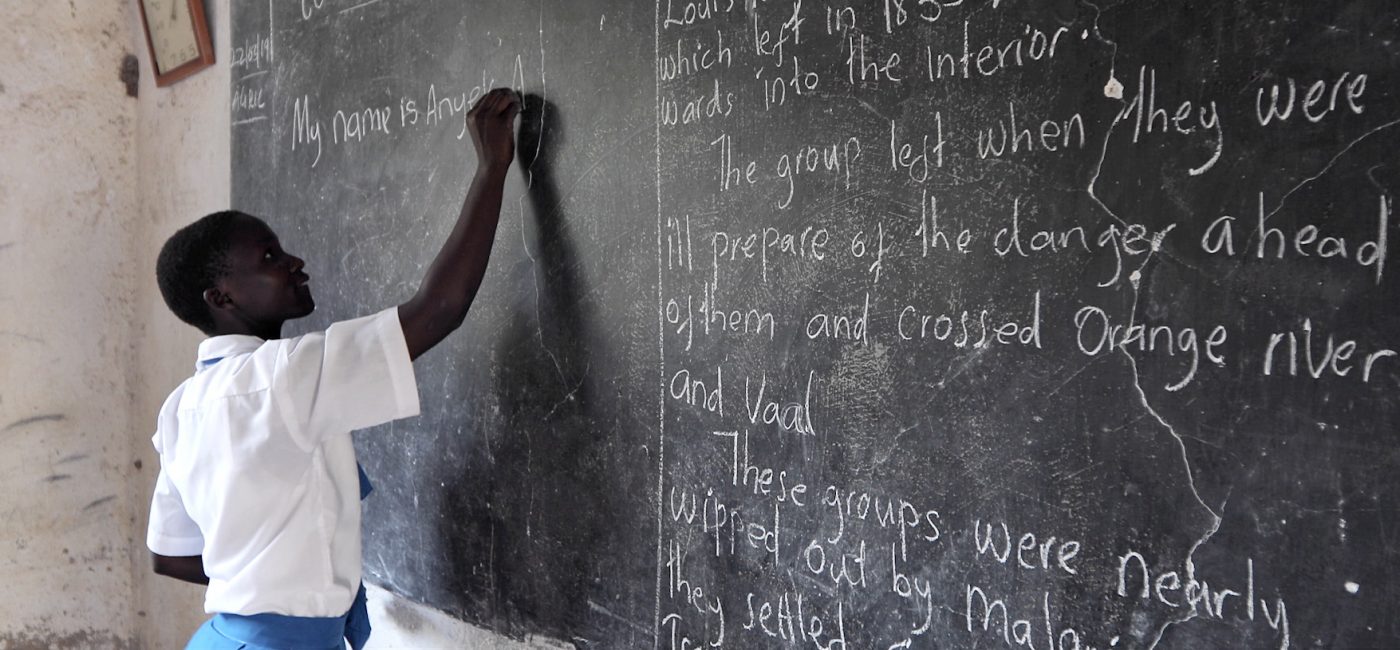 22/03/19
AGRIC
My name is Angel
which left in
wards into the interior.
The group left when they were
ill prepare of the danger ahead
of them and crossed Orange river
and Vaal
These groups were nearly
wipped out by
they settled